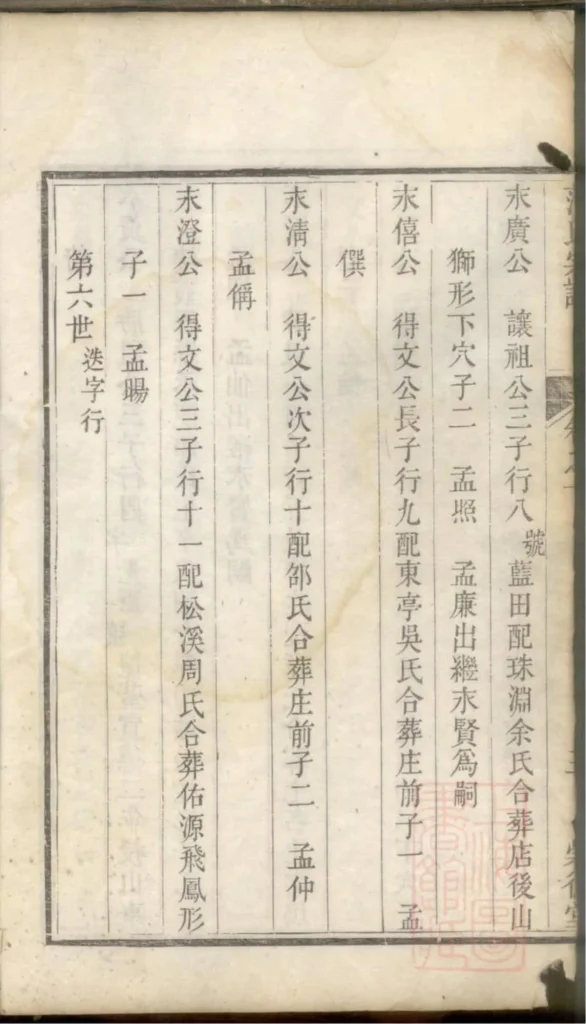 永廣公 讓祖公三子行八號藍田配珠淵余氏合葬店後山
獅形下穴子二 孟照 孟廉出繼永賢爲嗣
永僖公 得文公長子行九配東亭吳氏合葬庄前子一 孟
僎
永清公 得文公次子行十配邵氏合葬庄前子二 孟仲
孟偁
永澄公 得文公三子行十一配松溪周氏合葬佑源飛鳳形
子一 孟暘
第六世 迭字行